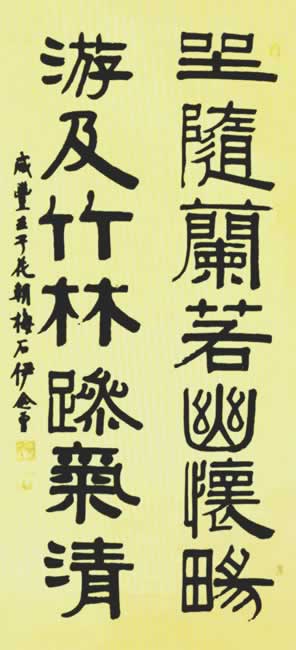 坐隨蘭若幽懷畼
游及竹林踈氣清
咸豐壬子花朝梅石伊念曾